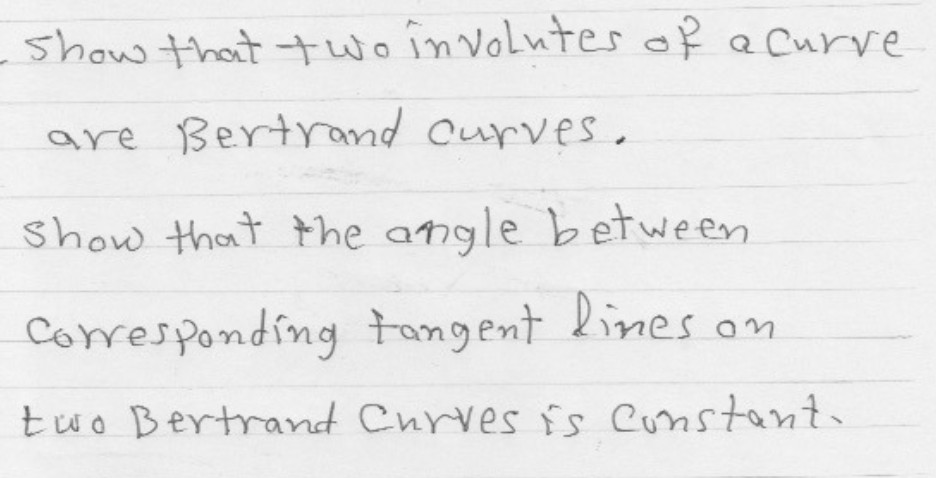 Show that two involutes of a curve
are Bertrand curves.
Show that the angle between
Corresponding tangent lines on
two Bertrand Curves is Constant.